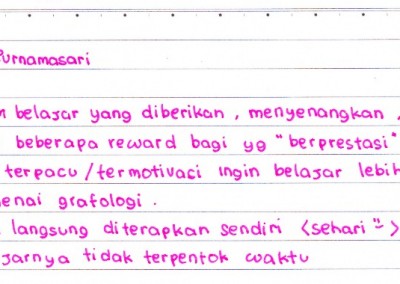 urnamasari
belajar yang diberikan, menyenangkan,
beberapa reward bagi yg "berprestasi"
terpacu/termotivaci ingin belajar lebih
enai grafologi.
langsung diterapkan sendiri <sehari">
jarnya tidak terpentok waktu